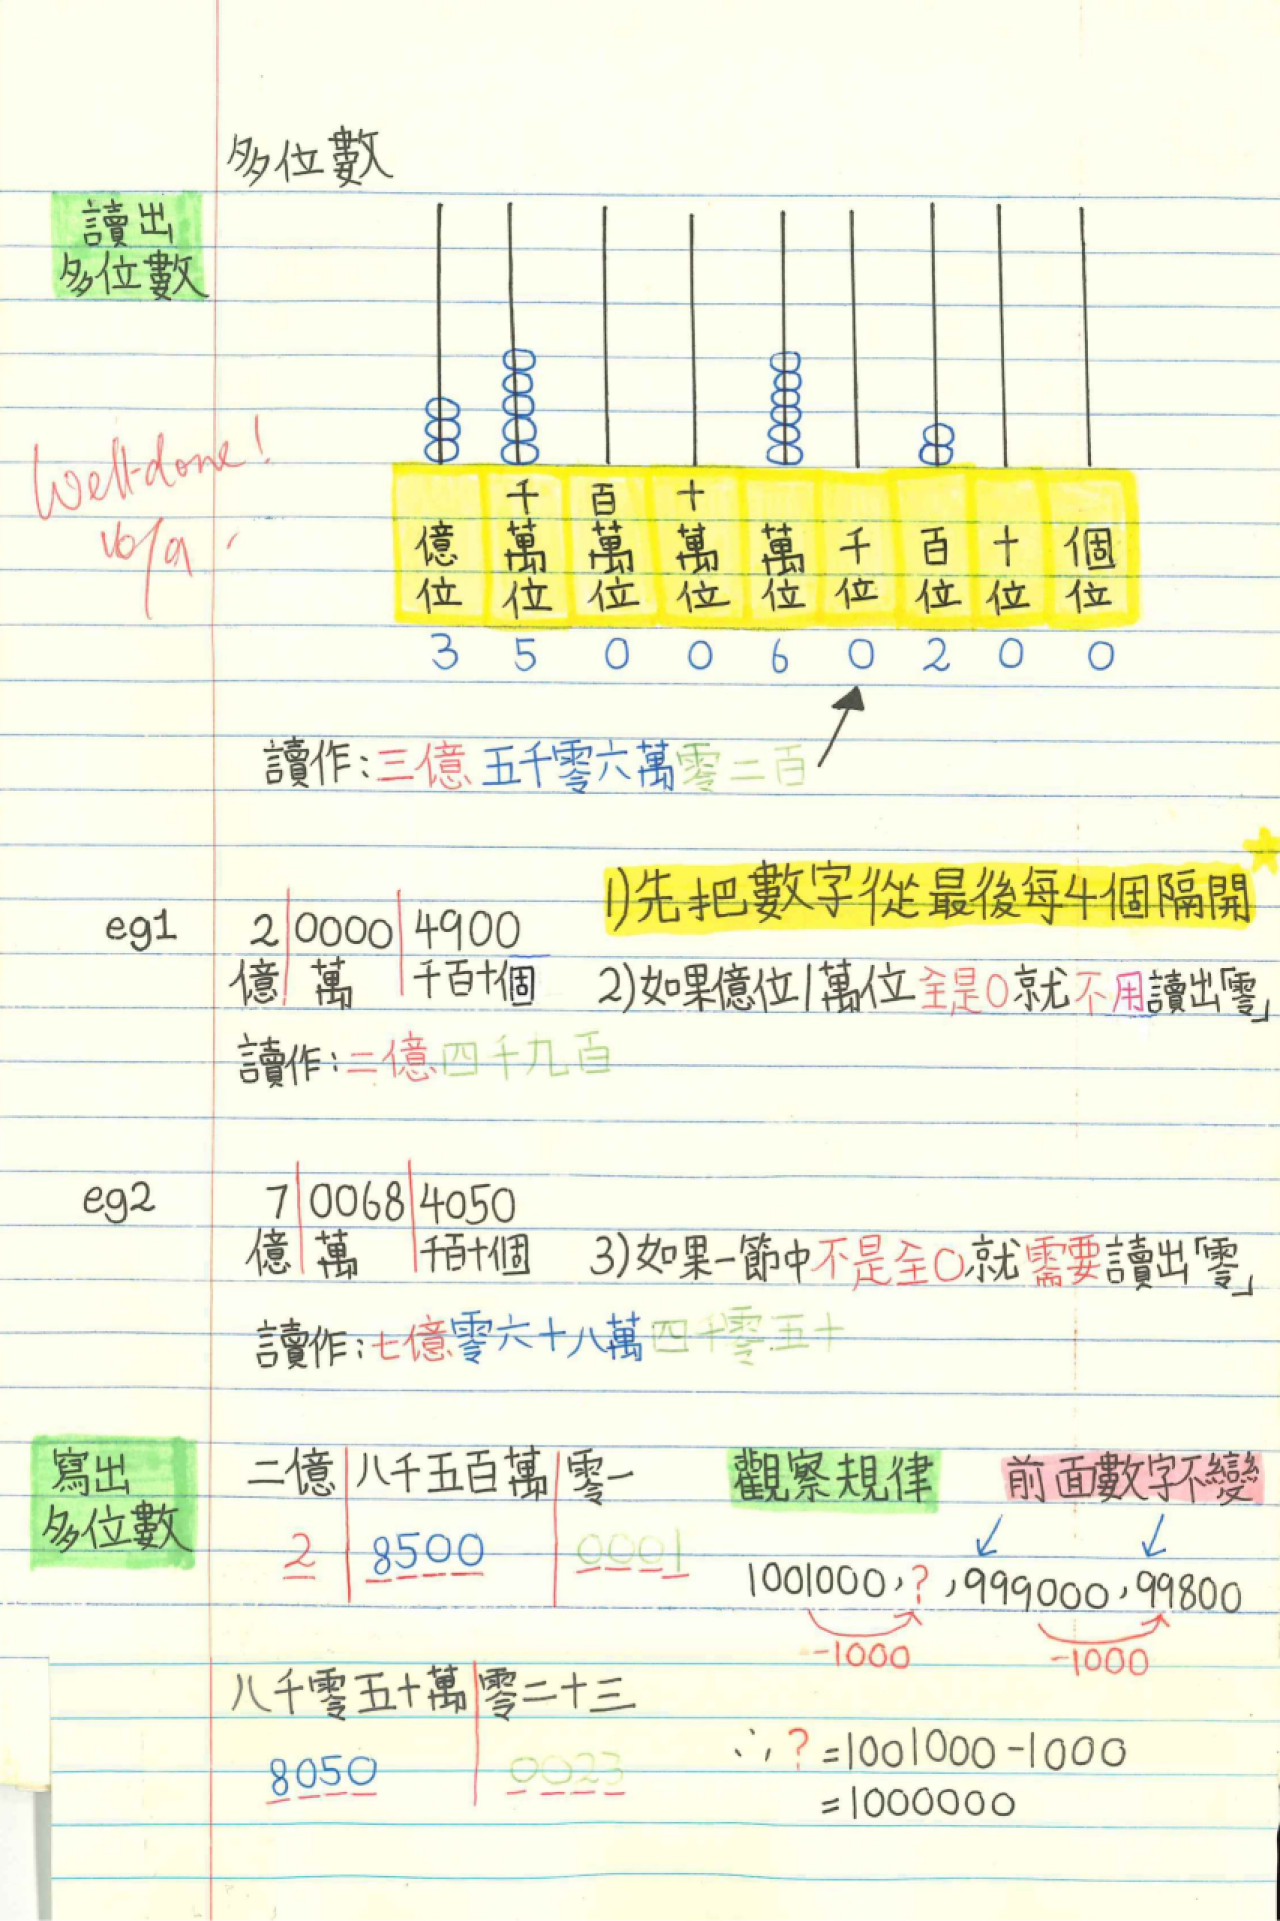 多位數
讀出
多位數
Well done!
億位 千萬位 百萬位 十萬位 萬位 千位 百位 十位 個位
3 5 0 0 6 0 2 0 0
讀作:三億五千零六萬零二百
1)先把數字從最後每4個隔開
eg1 2|0000|4900
億 萬 千百十個
2)如果億位/萬位全是0就不用讀出「零」
讀作:二億四千九百
eg2 7|0068|4050
億 萬 千百十個
3)如果一節中不是全0就需要讀出「零」
讀作:七億零六十八萬四千零五十
寫出
多位數
二億|八千五百萬|零一
2 8500 0001
八千零五十萬|零二十三
8050 0023
觀察規律 前面數字不變
1001000,?,999000,99800
-1000 -1000
∴?=1001000-1000
=1000000